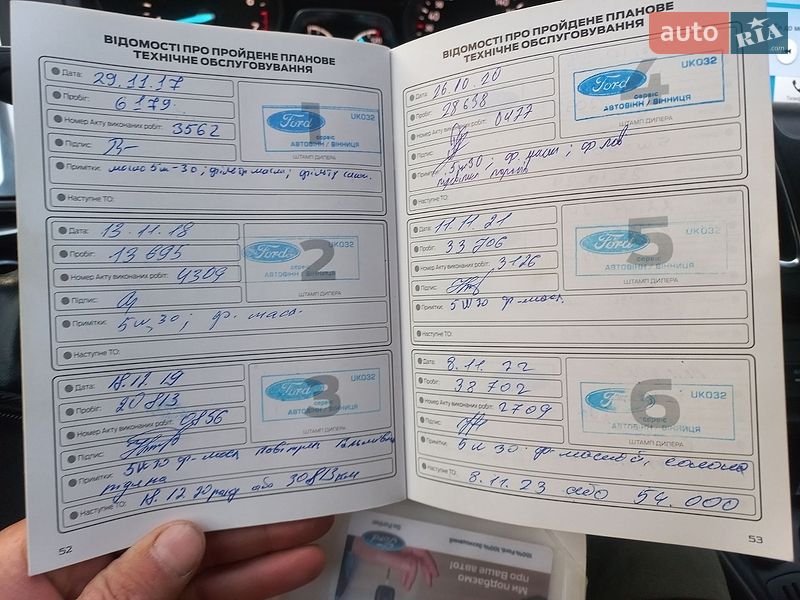 ВІДОМОСТІ ПРО ПРОЙДЕНЕ ПЛАНОВЕ
ТЕХНІЧНЕ ОБСЛУГОВУВАННЯ
Дата: 29.11.17
Пробіг: 6179
Номер Акту виконаних робіт: 3562
Підпис:
1
Ford
UK032
сервіс
АВТОВІНН / ВІННИЦЯ
ШТАМП ДИЛЕРА
Примітки: масло 5w-30; фільтр масл;
Наступне ТО:
Дата: 13.11.18
Пробіг: 13695
Номер Акту виконаних робіт: 4309
Підпис:
2
Ford
UK032
сервіс
АВТОВІНН / ВІННИЦЯ
ШТАМП ДИЛЕРА
Примітки: 5w30; ф. масл.
Наступне ТО:
Дата: 18.12.19
Пробіг: 20813
Номер Акту виконаних робіт: 0856
Підпис:
3
Ford
UK032
сервіс
АВТОВІНН / ВІННИЦЯ
ШТАМП ДИЛЕРА
Примітки: 5w30 ф-масл повітрян гальмівна
рідина
Наступне ТО: 18.12.20року або 30813км
52
ВІДОМОСТІ ПРО ПРОЙДЕНЕ ПЛАНОВЕ
ТЕХНІЧНЕ ОБСЛУГОВУВАННЯ
Дата: 26.10.20
Пробіг: 28638
Номер Акту виконаних робіт: 0477
Підпис:
4
Ford
UK032
сервіс
АВТОВІНН / ВІННИЦЯ
ШТАМП ДИЛЕРА
Примітки: 5w30; ф. масл; ф.
Наступне ТО:
Дата: 11.11.21
Пробіг: 33706
Номер Акту виконаних робіт: 3126
Підпис:
5
Ford
UK032
сервіс
АВТОВІНН / ВІННИЦЯ
ШТАМП ДИЛЕРА
Примітки: 5W30 ф-масл.
Наступне ТО:
Дата: 8.11.22
Пробіг: 38702
Номер Акту виконаних робіт: 2709
Підпис:
6
Ford
UK032
сервіс
АВТОВІНН / ВІННИЦЯ
ШТАМП ДИЛЕРА
Примітки: 5w30 ф-масляний, салона
Наступне ТО: 8.11.23 або 54.000
53
auto RIA .com
Ford
Go Further
100% Ford. 100% Захищений
Ми подбаємо
про Ваше авто!